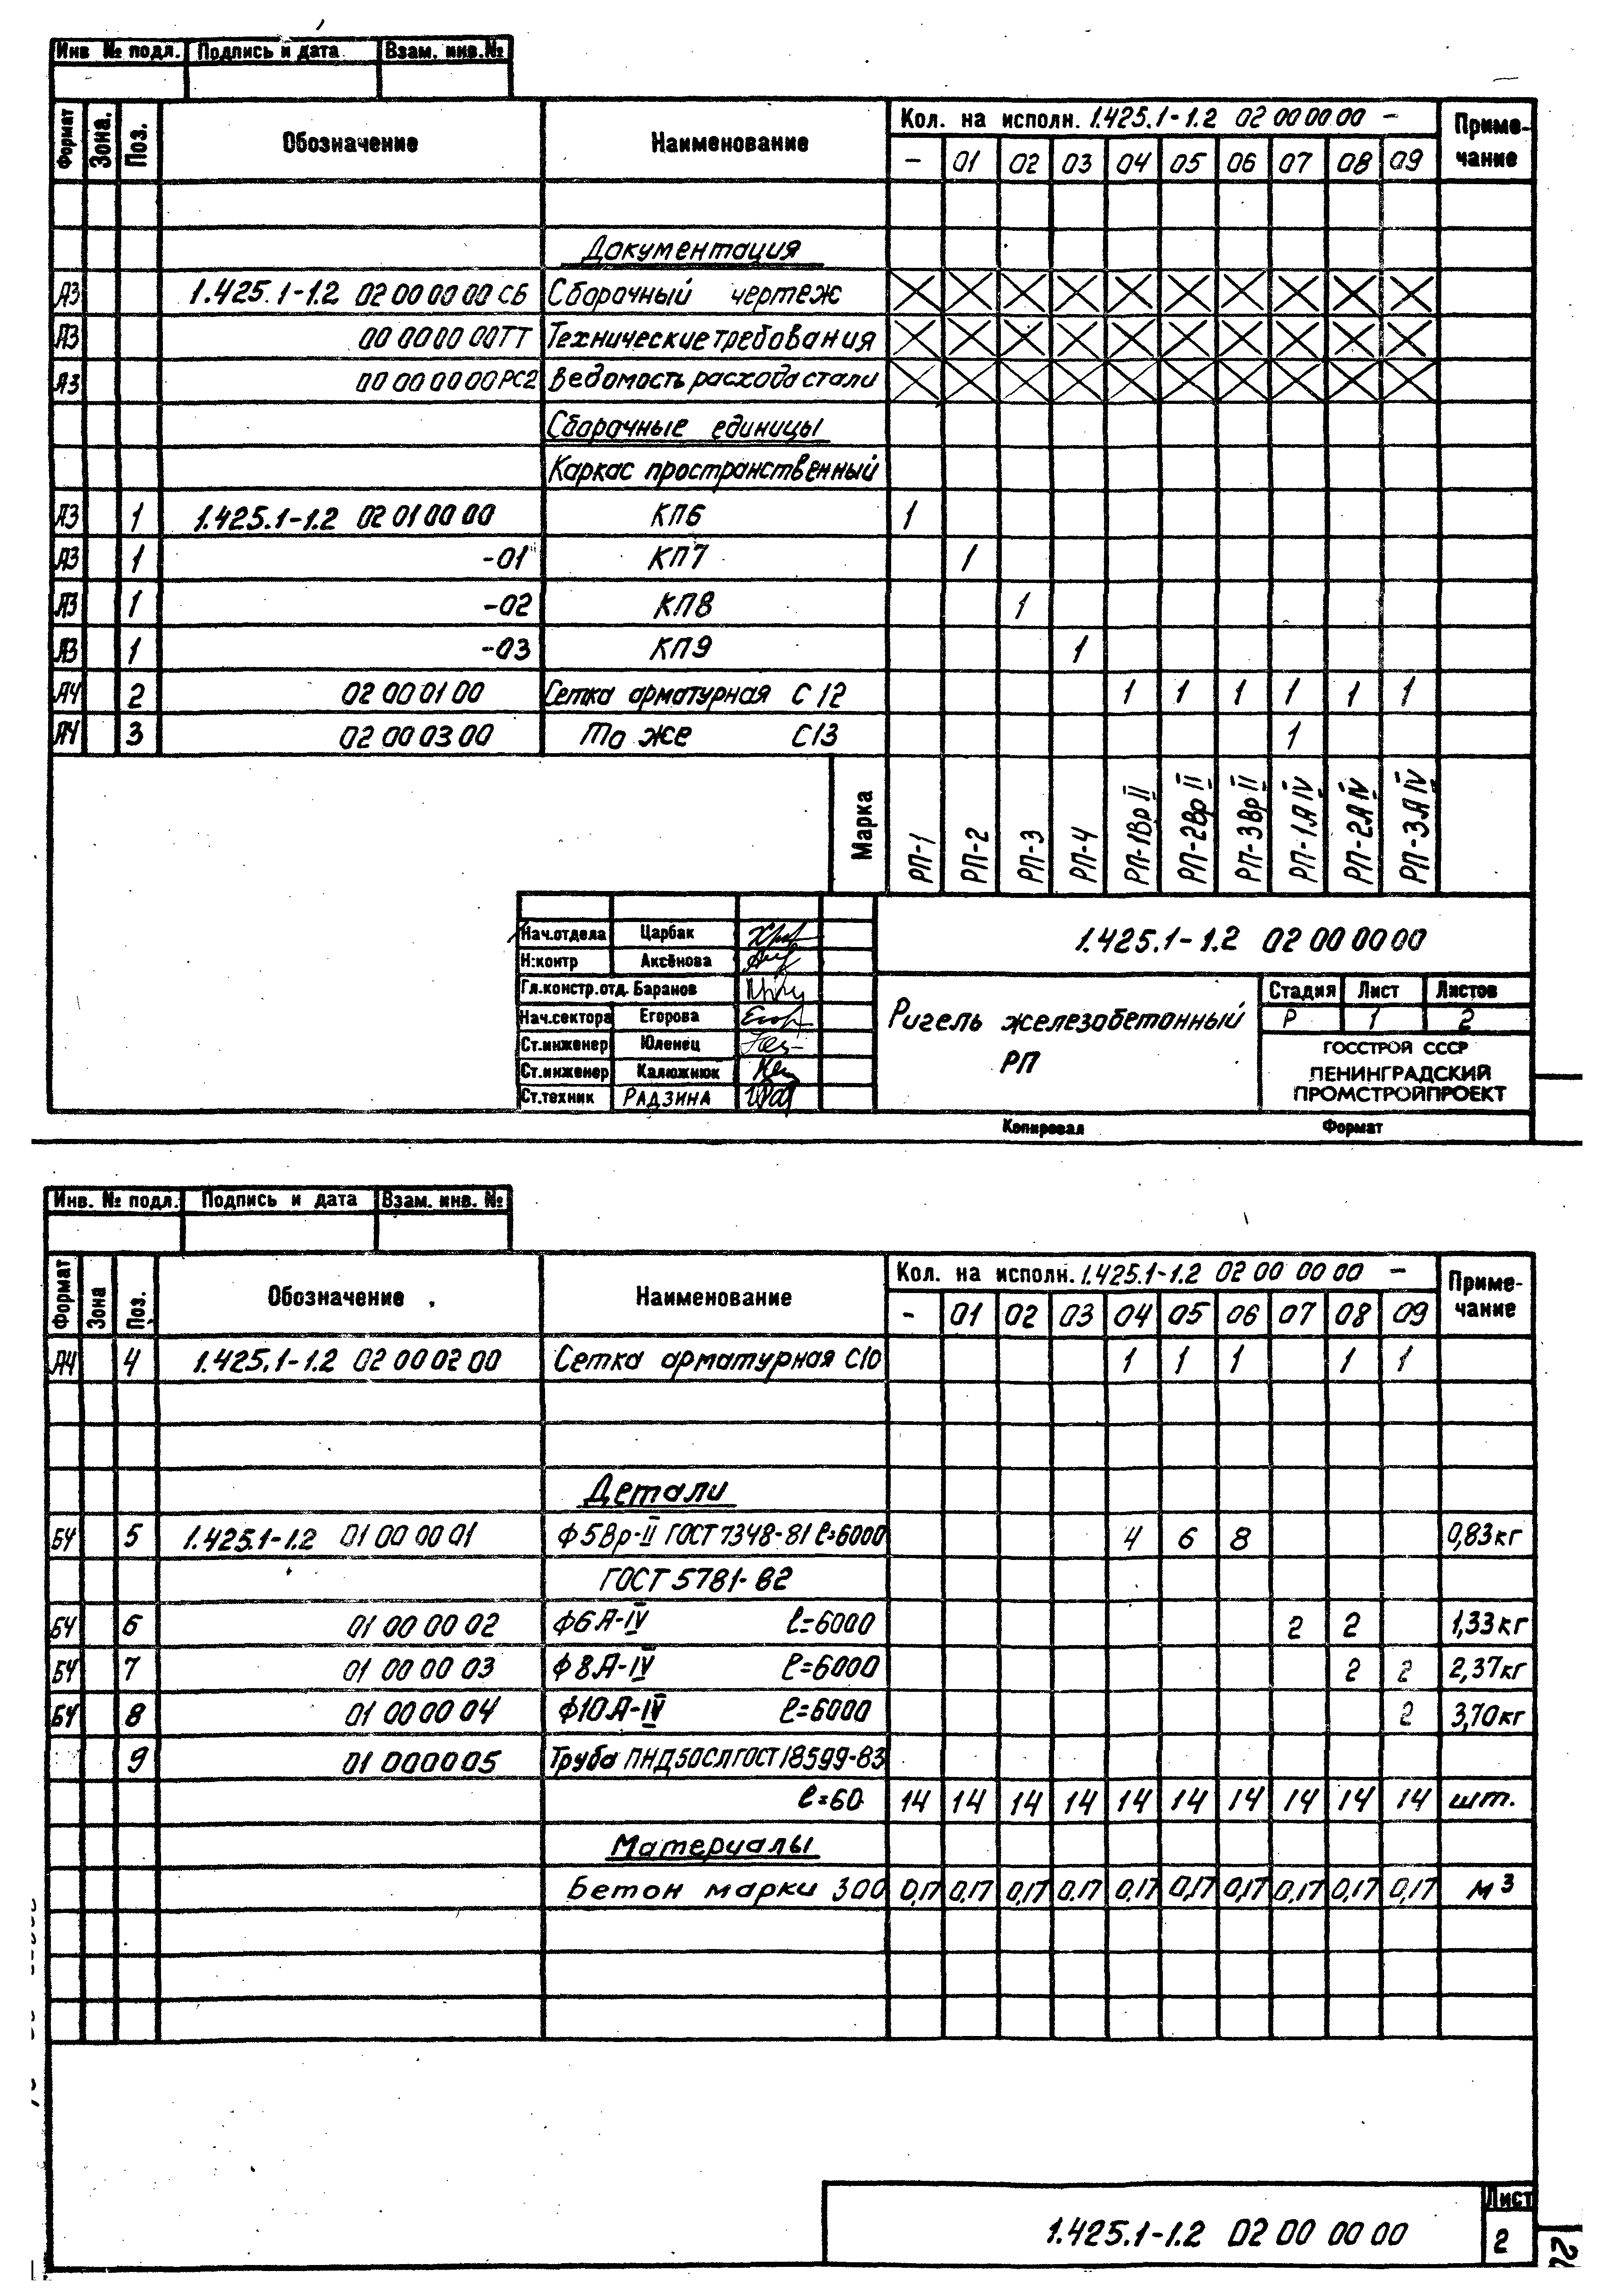 Инв № подл. Подпись и дата Взам. инв.№
Формат Зона. Поз. Обозначение Наименование Кол. на исполн. 1.425.1-1.2 02 00 00 00 - Приме-чание
- 01 02 03 04 05 06 07 08 09
Документация
А3 1.425.1-1.2 02 00 00 00 СБ Сборочный чертеж
А3 00 00 00 00 ТТ Технические требования
А3 00 00 00 00 РС2 Ведомость расхода стали
Сборочные единицы
Каркас пространственный
А3 1 1.425.1-1.2 02 01 00 00 КП6 1
А3 1 -01 КП7 1
А3 1 -02 КП8 1
А3 1 -03 КП9 1
А4 2 02 00 01 00 Сетка арматурная С12 1 1 1 1 1 1
А4 3 02 00 03 00 То же С13 1
Марка РП-1 РП-2 РП-3 РП-4 РП-1Вр II РП-2Вр II РП-3Вр II РП-1А IV РП-2А IV РП-3А IV
Нач.отдела Царбак
Н.контр Аксёнова
Гл.констр.отд. Баранов
Нач.сектора Егорова
Ст.инженер Юленец
Ст.инженер Калюжнюк
Ст.техник РАДЗИНА
1.425.1-1.2 02 00 00 00
Ригель железобетонный
РП
Стадия Лист Листов
Р 1 2
ГОССТРОЙ СССР
ЛЕНИНГРАДСКИЙ
ПРОМСТРОЙПРОЕКТ
Копировал Формат
Инв. № подл. Подпись и дата Взам. инв. №
Формат Зона Поз. Обозначение Наименование Кол. на исполн. 1.425.1-1.2 02 00 00 00 - Приме-чание
- 01 02 03 04 05 06 07 08 09
А4 4 1.425.1-1.2 02 00 02 00 Сетка арматурная С10 1 1 1 1 1
Детали
БЧ 5 1.425.1-1.2 01 00 00 01 Ф5Вр-II ГОСТ 7348-81 ℓ=6000 4 6 8 0,83кг
ГОСТ 5781-82
БЧ 6 01 00 00 02 Ф6А-IV ℓ=6000 2 2 1,33кг
БЧ 7 01 00 00 03 Ф8А-IV ℓ=6000 2 2 2,37кг
БЧ 8 01 00 00 04 Ф10А-IV ℓ=6000 2 3,70кг
9 01 00 00 05 Труба ПНД50СЛ ГОСТ 18599-83
ℓ=60 14 14 14 14 14 14 14 14 14 14 шт.
Материалы
Бетон марки 300 0,17 0,17 0,17 0,17 0,17 0,17 0,17 0,17 0,17 0,17 м3
1.425.1-1.2 02 00 00 00
Лист
2